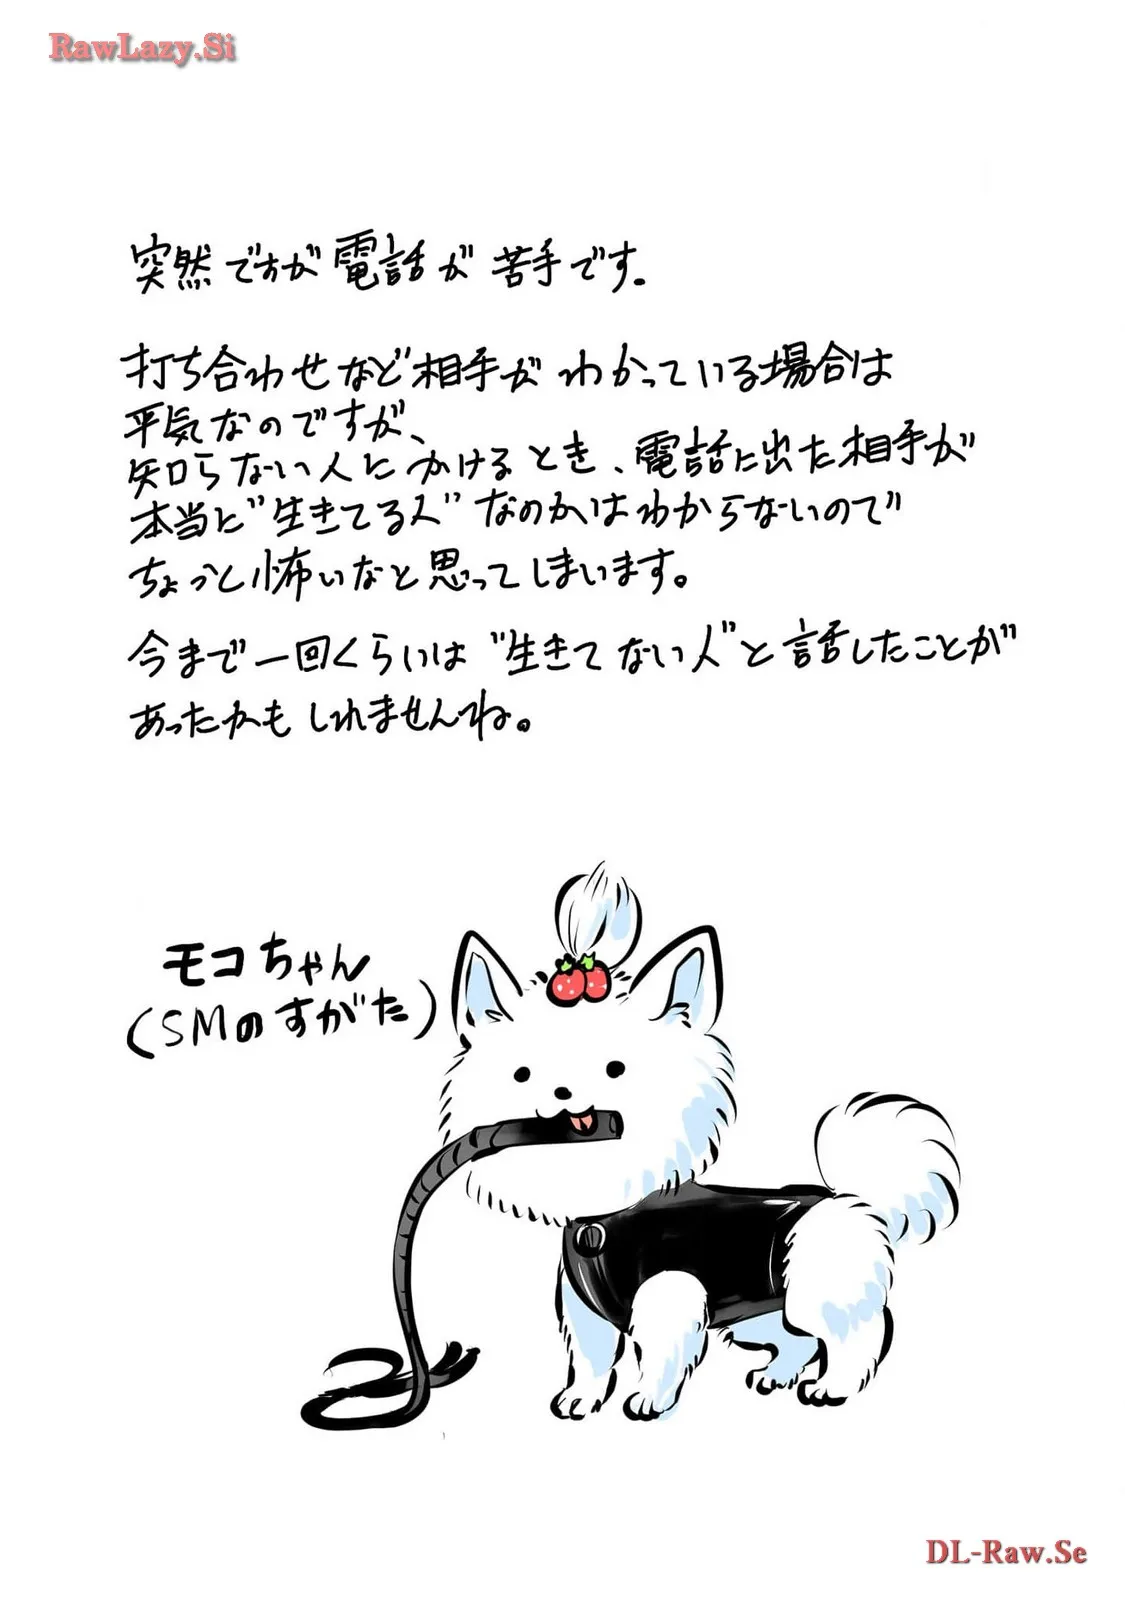 RawLazy.Si
突然ですが電話が苦手です。
打ち合わせなど相手がわかっている場合は
平気なのですが、
知らない人にかけるとき、電話に出た相手が
本当に"生きてる人"なのかはわからないので
ちょっと怖いなと思ってしまいます。
今まで一回くらいは"生きてない人"と話したことが
あったかもしれませんね。
モコちゃん
(SMのすがた)
DL-Raw.Se